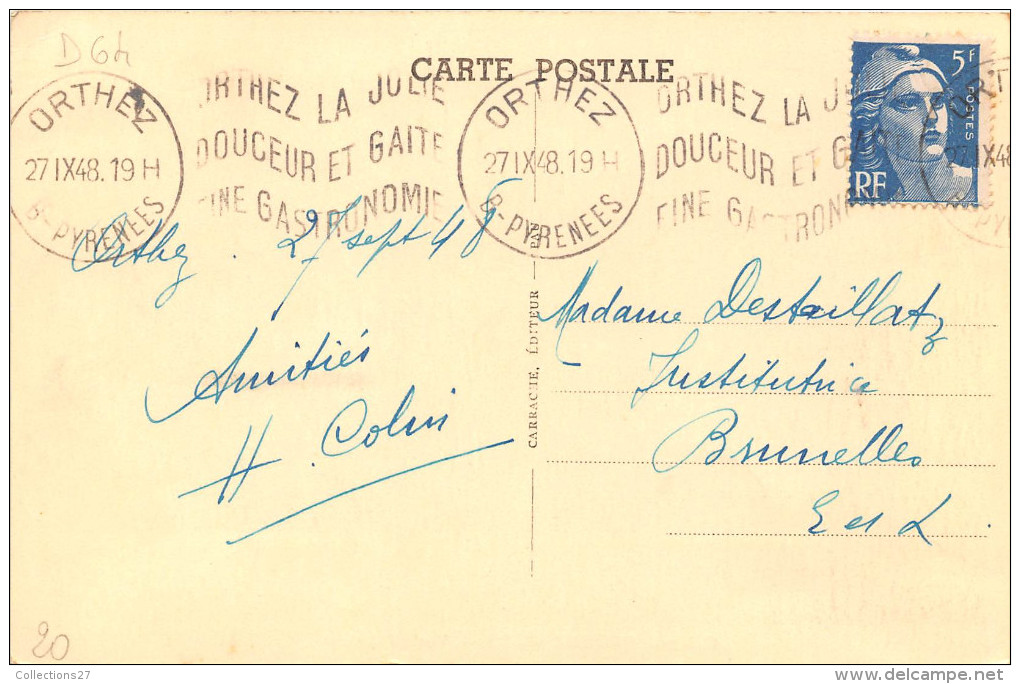 D64
CARTE POSTALE
ORTHEZ
27 IX 48. 19 H
B-PYRENEES
ORTHEZ LA JOLIE
DOUCEUR ET GAITE
FINE GASTRONOMIE
ORTHEZ
27 IX 48. 19 H
B-PYRENEES
ORTHEZ LA JO
DOUCEUR ET GAI
FINE GASTRONO
5F
POSTES
RF
ORT
27 IX 48
Orthez. 27 sept 48
Amitiés
H. Colin
CARRACHE, ÉDITEUR
Madame Destaillatz
Institutrice
Brunelles
E et L.
20
Collections27
delcampe.net